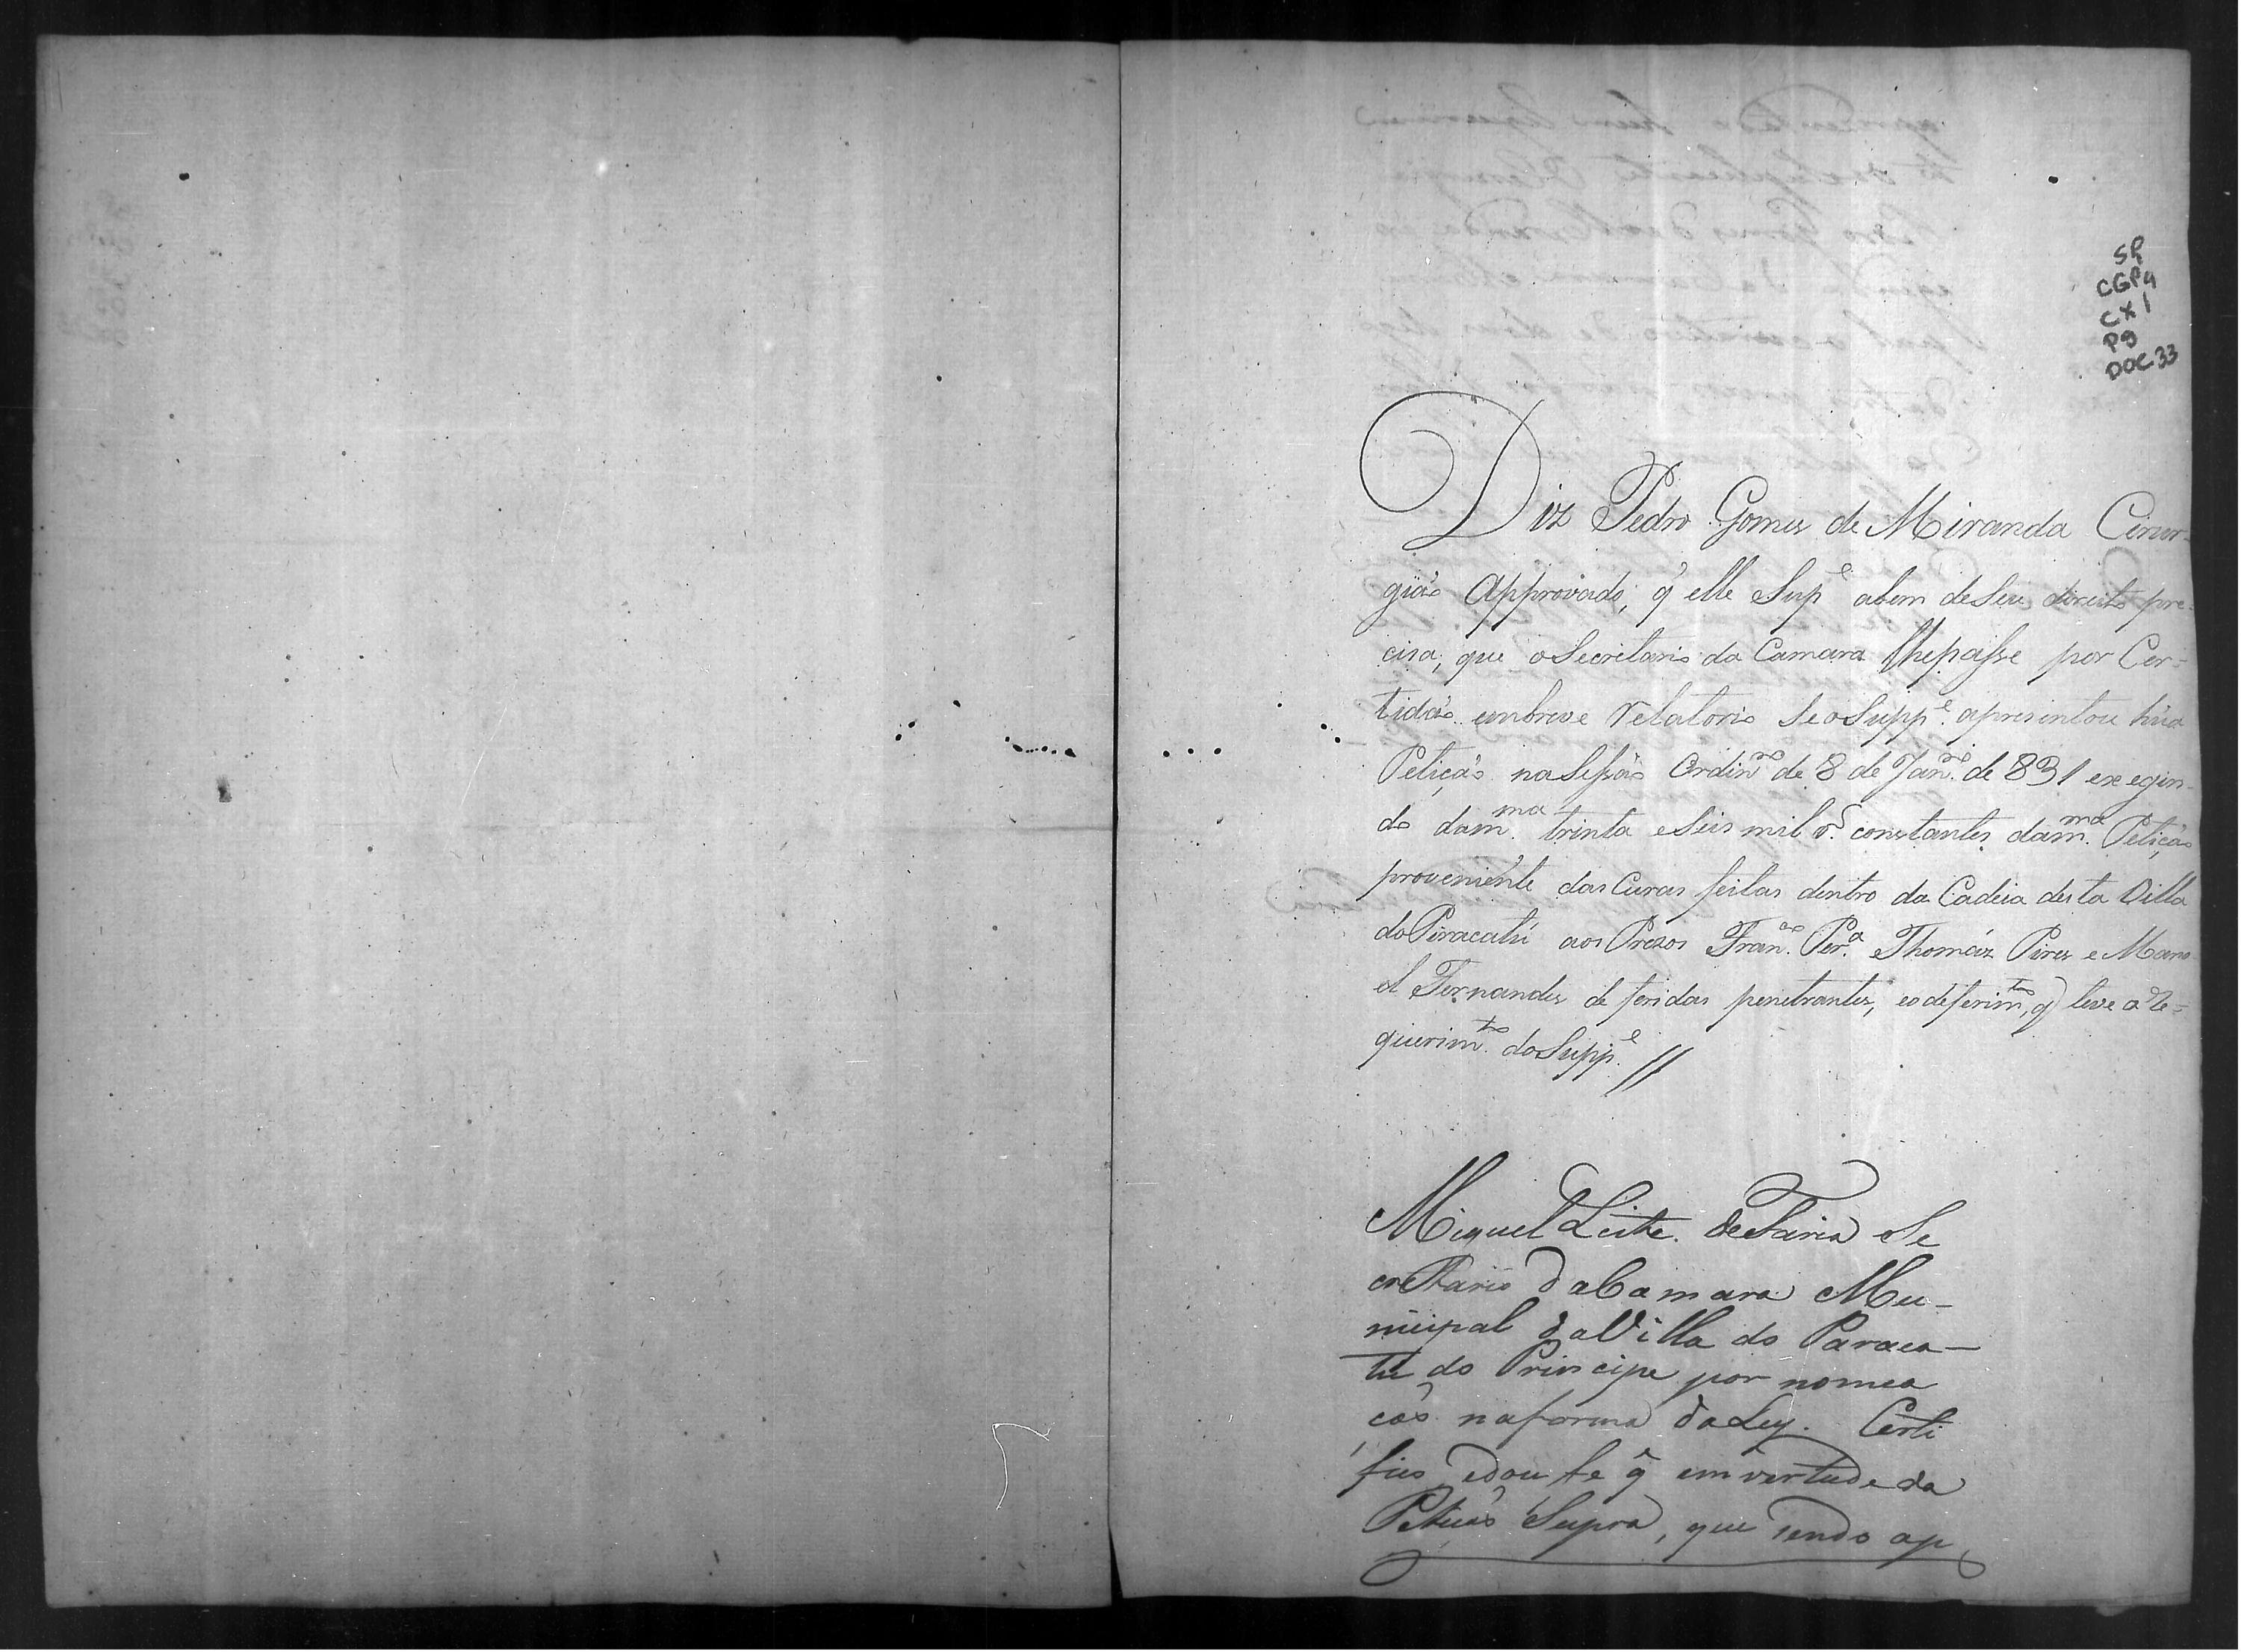 SP
CGP4
CX1
P9
DOC.33
Diz Pedro Gomes de Miranda Cirur-
giaõ Approvado, q̃ elle Sup.e abem deSeu direito pre-
cisa, que oSecretario da Camara lhepaſse por Cer=
tidaõ embreve relatorio SeoSupp.e apresentou hũa
Petiçaõ naSeſsaõ Ordin.ro de 8 de Jan.ro de 831 exegin-
do dam.ma trinta eSeis mil r.s constantes dam.ma Petiçaõ
proveniente das Curas feitas dentro da Cadeia desta Villa
doPiracatú aos Prezos Fran.co Per.a eThomáz Pires e Mano
el Fernandes de feridas penetrantes, eodeferim.to, q̃ teve o re=
querim.to doSupp.e //
Miguel Leite deFaria Se
cretario daCamara Mu-
nicipal daVilla do Paraca-
tú do Principe por nomea
caõ naforma daLey. Certi
fico edou fe q̃ emvertude da
Peticaõ Supra, que sendo ap